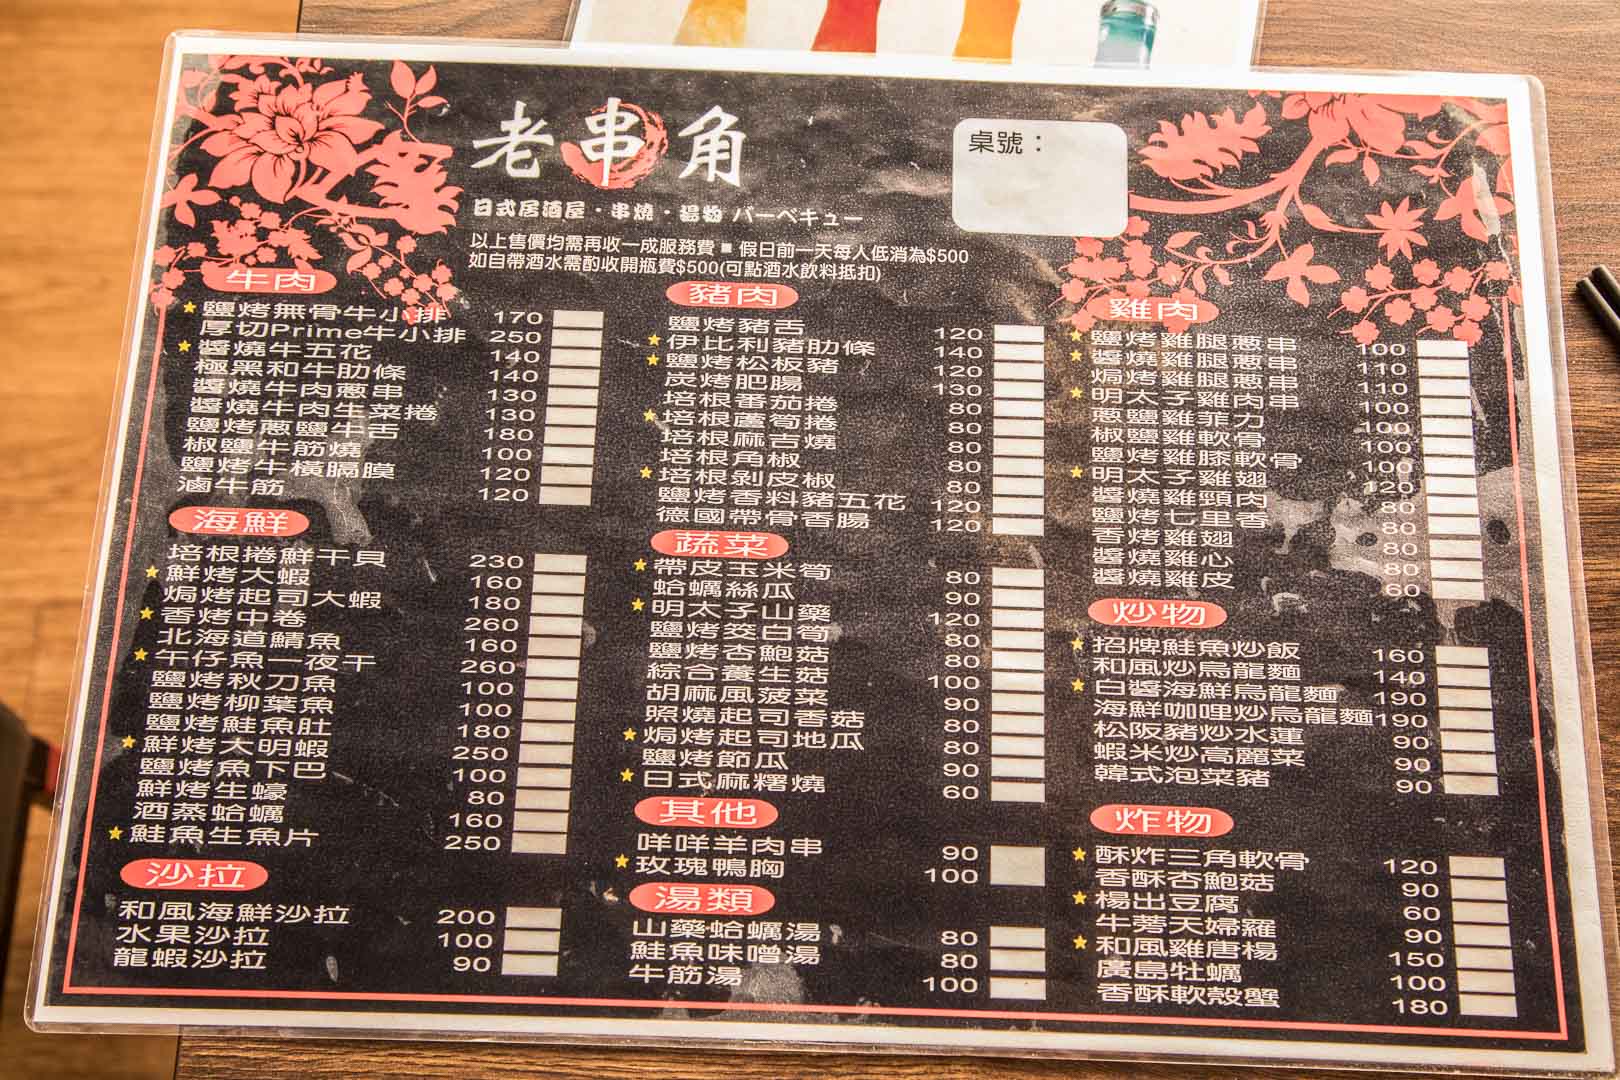 老串角
桌號：
日式居酒屋・串燒・揚物 バーベキュー
以上售價均需再收一成服務費 ■ 假日前一天每人低消為$500
如自帶酒水需酌收開瓶費$500(可點酒水飲料抵扣)
牛肉
★鹽烤無骨牛小排 170
厚切Prime牛小排 250
★醬燒牛五花 140
極黑和牛肋條 140
醬燒牛肉蔥串 130
醬燒牛肉生菜捲 130
鹽烤蔥鹽牛舌 180
椒鹽牛筋燒 100
鹽烤牛橫膈膜 120
滷牛筋 120
海鮮
培根捲鮮干貝 230
★鮮烤大蝦 160
焗烤起司大蝦 180
★香烤中卷 260
北海道鯖魚 160
★午仔魚一夜干 260
鹽烤秋刀魚 100
鹽烤柳葉魚 100
鹽烤鮭魚肚 180
★鮮烤大明蝦 250
鹽烤魚下巴 100
鮮烤生蠔 80
酒蒸蛤蠣 160
★鮭魚生魚片 250
沙拉
和風海鮮沙拉 200
水果沙拉 100
龍蝦沙拉 90
豬肉
鹽烤豬舌 120
★伊比利豬肋條 140
★鹽烤松板豬 120
炭烤肥腸 130
培根番茄捲 80
★培根蘆筍捲 80
培根麻吉燒 80
培根角椒 80
★培根剝皮椒 80
鹽烤香料豬五花 120
德國帶骨香腸 120
蔬菜
★帶皮玉米筍 80
蛤蠣絲瓜 90
★明太子山藥 120
鹽烤筊白筍 80
鹽烤杏鮑菇 80
綜合養生菇 100
胡麻風菠菜 90
照燒起司香菇 80
★焗烤起司地瓜 80
鹽烤節瓜 90
★日式麻糬燒 60
其他
咩咩羊肉串 90
★玫瑰鴨胸 100
湯類
山藥蛤蠣湯 80
鮭魚味噌湯 80
牛筋湯 100
雞肉
★鹽烤雞腿蔥串 100
★醬燒雞腿蔥串 110
焗烤雞腿蔥串 110
★明太子雞肉串 100
蔥鹽雞菲力 100
椒鹽雞軟骨 100
鹽烤雞膝軟骨 100
★明太子雞翅 120
醬燒雞頸肉 80
鹽烤七里香 80
香烤雞翅 80
醬燒雞心 80
醬燒雞皮 60
炒物
★招牌鮭魚炒飯 160
和風炒烏龍麵 140
★白醬海鮮烏龍麵 190
海鮮咖哩炒烏龍麵 190
松阪豬炒水蓮 90
蝦米炒高麗菜 90
韓式泡菜豬 90
炸物
★酥炸三角軟骨 120
香酥杏鮑菇 90
★楊出豆腐 60
牛蒡天婦羅 90
★和風雞唐楊 150
廣島牡蠣 100
香酥軟殼蟹 180